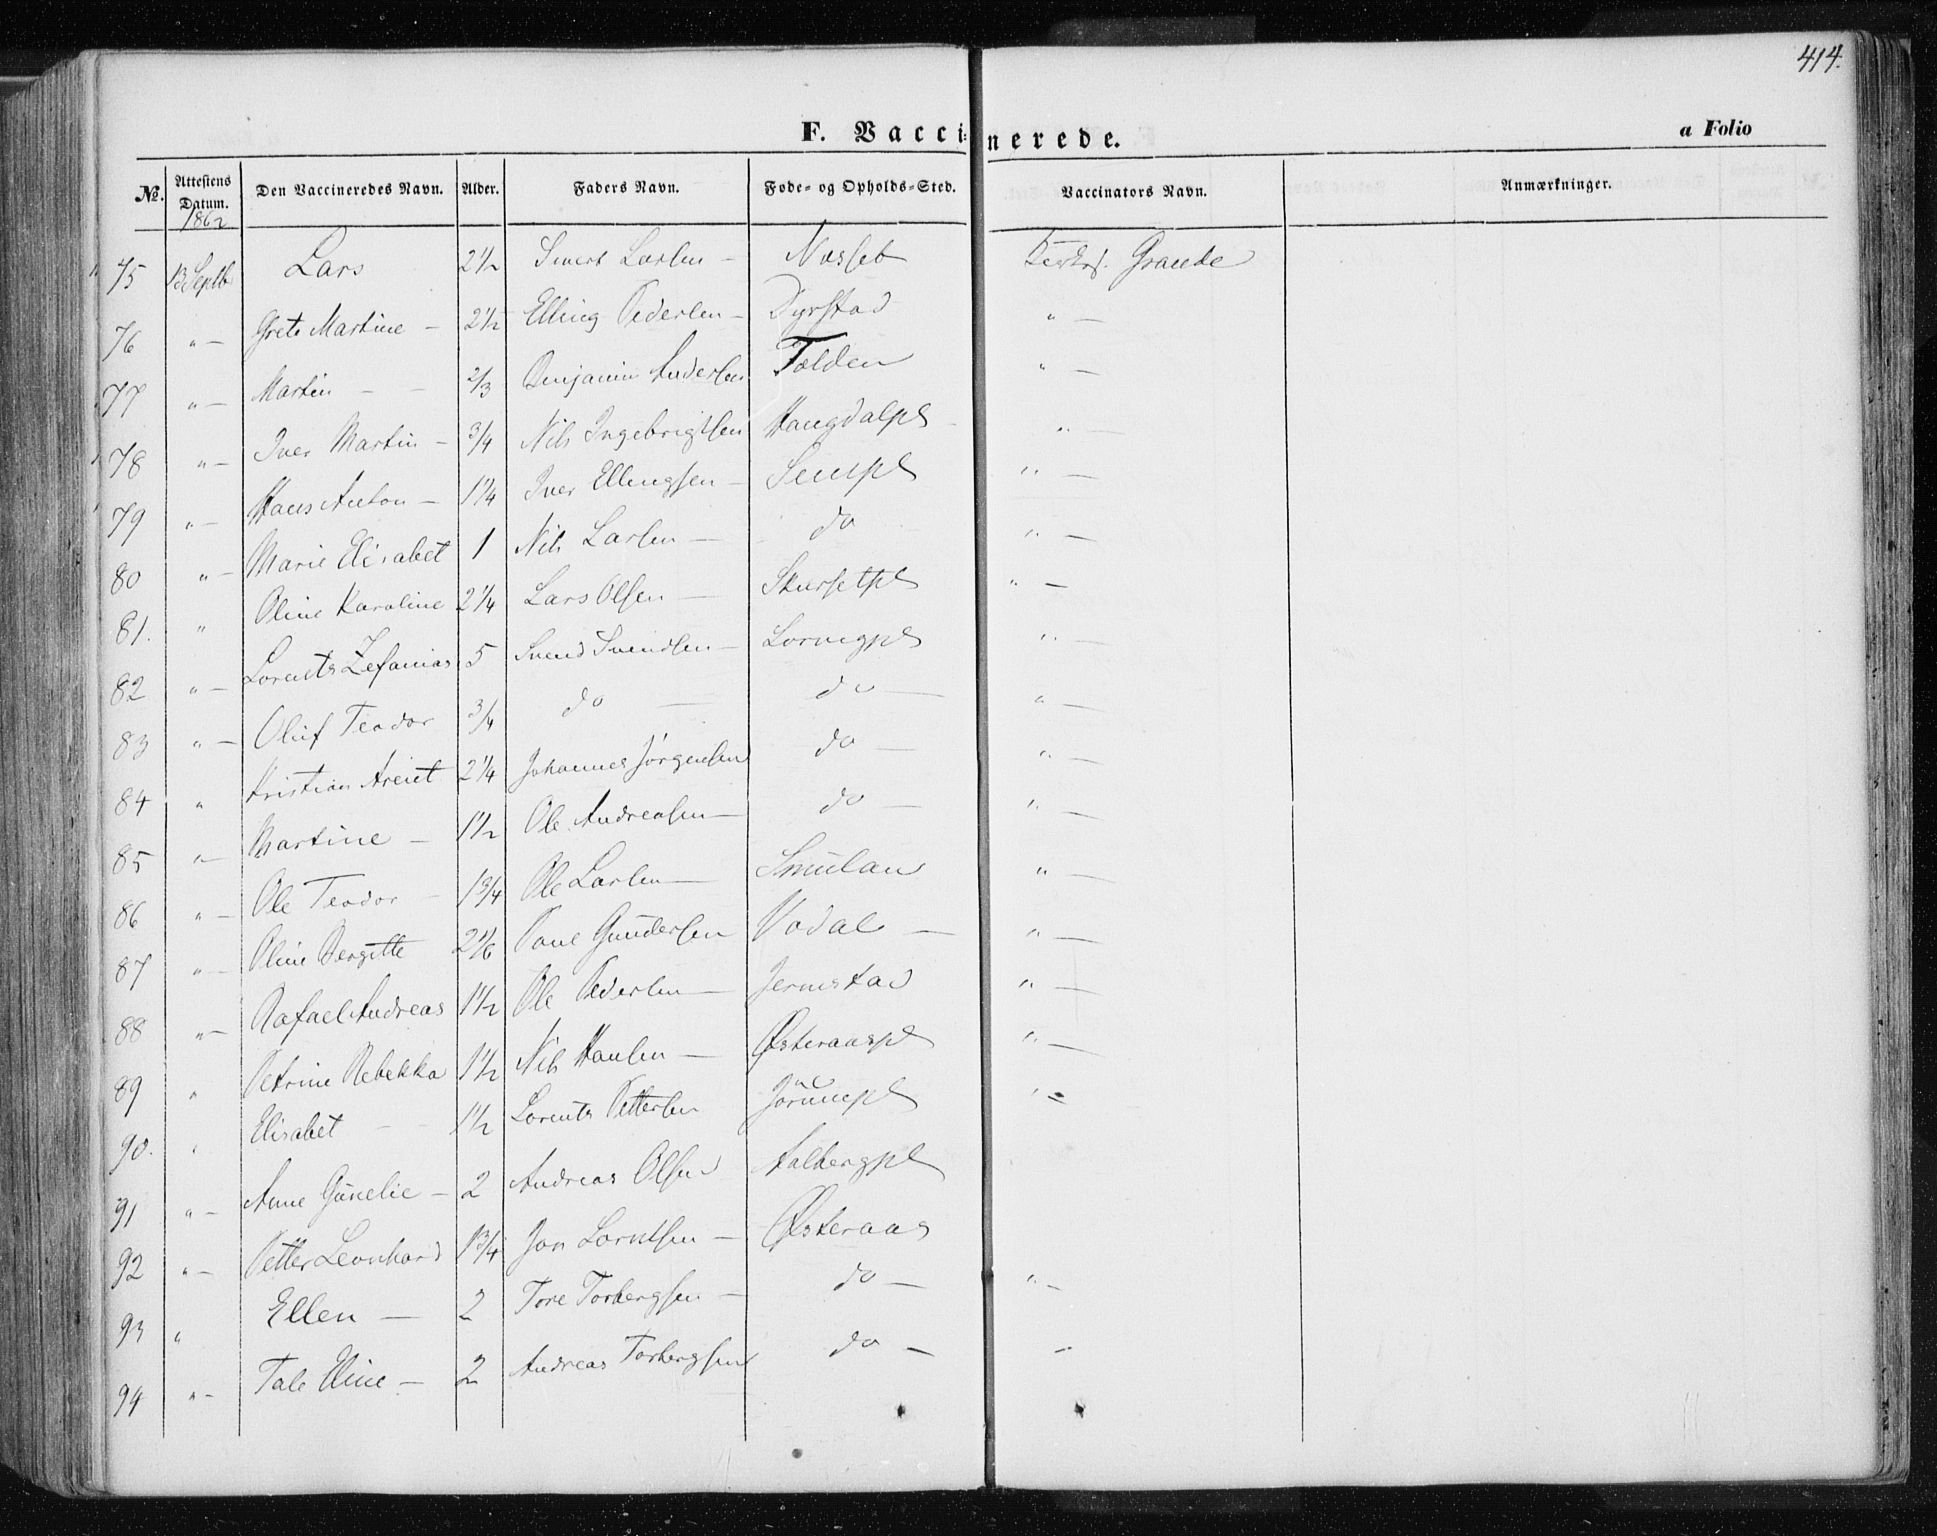 414.
F. Vaccinerede.
a Folio
No. Attestens Datum. Den Vaccineredes Navn. Alder. Faders Navn. Føde- og Opholds-Sted. Vaccinators Navn. Anmærkninger.
1862
75 13 Septb Lars 2 1/2 Sivert Larsen — Nasset Grande
76 " — Grete Martine — 2 1/2 Elling Pedersen — Dyrstad " —
77 " — Martin — — 2/3 Benjamin Andersen Tolden " —
78 " — Iver Martin — 3/4 Nils Ingebrigtsen Haugdalpl " —
79 " — Hans Anton — 1 1/4 Iver Ellingsen — Sempl " —
80 " — Marie Elisabet 1 Nils Larsen — do " —
81. " Oline Karoline 2 1/4 Lars Olsen — Skursetpl " —
82 " — Lorents Zefanias 5 Svend Svendsen — Lorvigpl " —
83 " — Oluf Teodor 3/4 do — do — " —
84 " Kristian Areiet 2 1/4 Johannes Jørgensen do — " —
85 " — Martine — 1 1/2 Ole Andreasen — do — " —
86 " — Ole Teodor — 1 3/4 Ole Larsen — Smulan " —
87 " — Oline Bergitte 2 1/6 Paul Gundersen Vodal — " —
88 " — Rafael Andreas 1 1/2 Ole Pedersen — Jermstad " —
89 " Petrine Rebekka 1 1/2 Nils Hansen — Østeraaspl " —
90. " Elisabet — — 1 1/2 Lorents Pettersen Jörumpl " —
91 " — Anne Gunelie — 2 Andreas Olsen Aalbergpl
92 " — Petter Leonhard 1 3/4 Jon Lorntsen — Østeraas
93 " Ellen — 2 Tore Torbergsen — do — " —
94 " — Tale Eline — 2 Andreas Torbergsen do — —